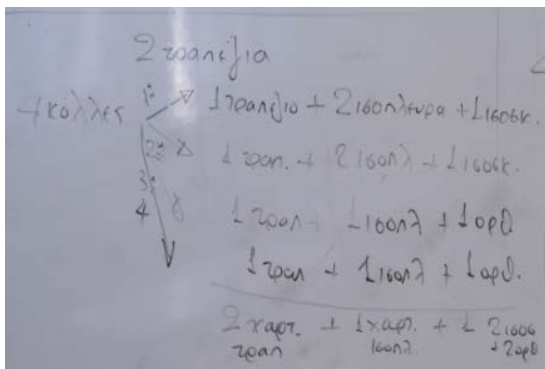 2 τραπέζια
4 κόλλες 1η 1 τραπέζιο + 2 ισοπλευρα + 1 ισοσκ.
2η 1 τραπ. + 2 ισοπλ + 1 ισοσκ.
3η 1 τραπ + 1 ισοπλ + 1 ορθ
4 1 τραπ + 1 ισοπλ + 1 ορθ.
2 χαρτ. + 1 χαρτ. + 1 2 ισοσ
τραπ ισοπλ. + 2 ορθ